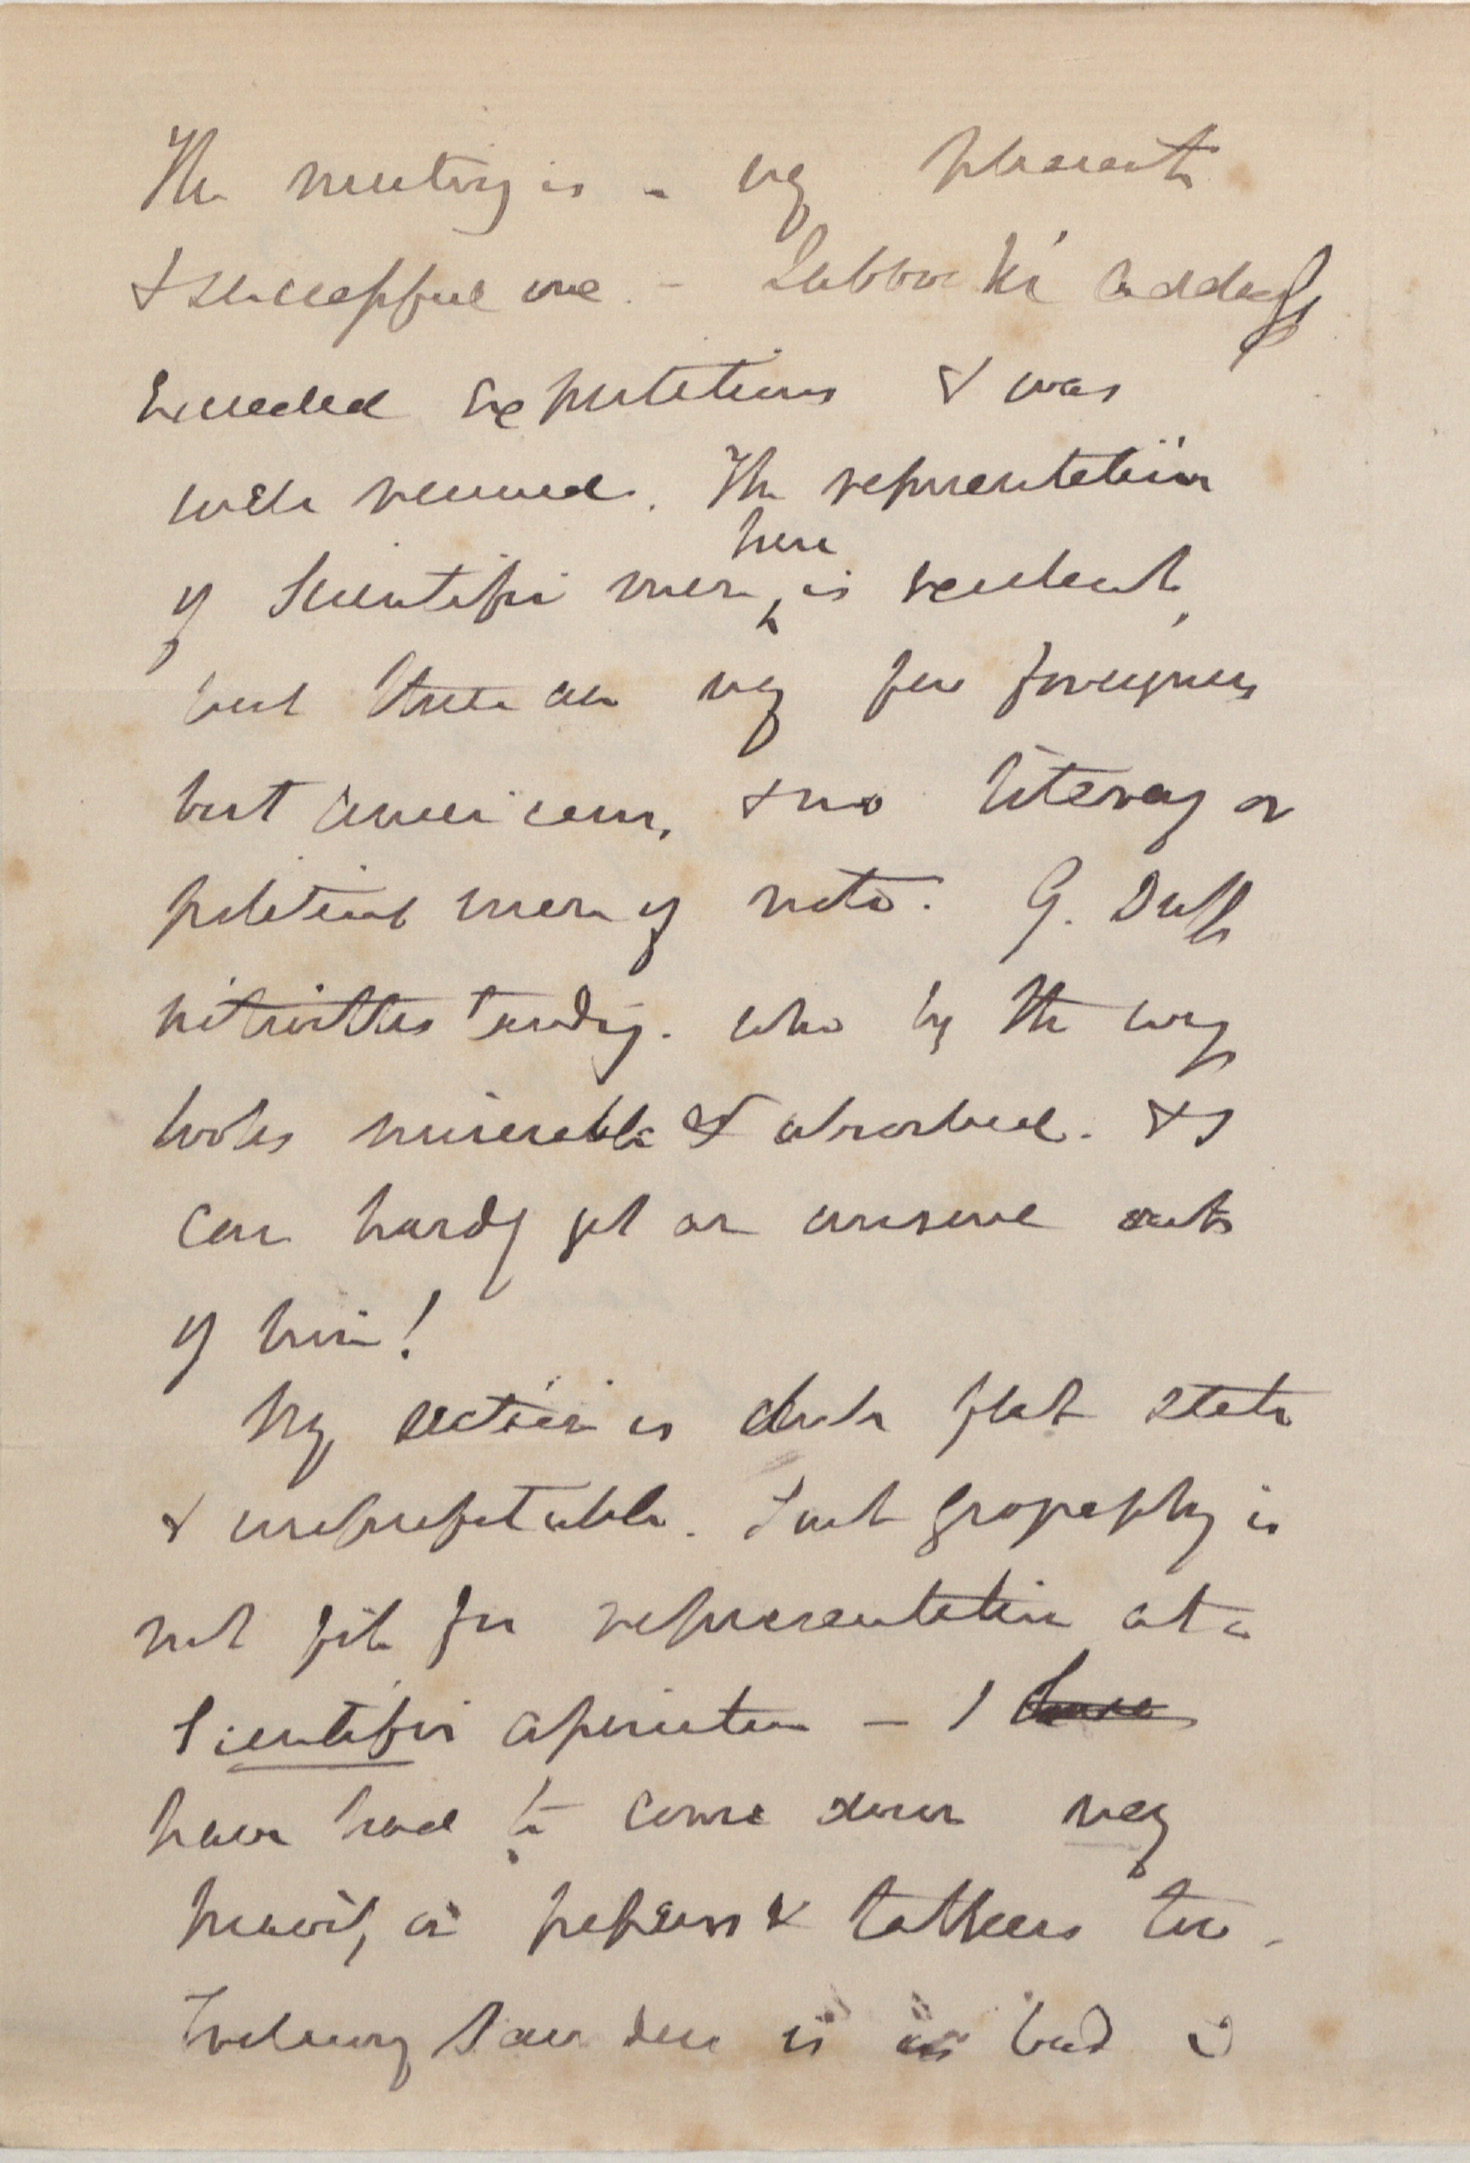 The meeting is a very pleasant
& successful one. – Lubbock's address
exceeded expectations & was
well received. The representation
of Scientific men here is excellent,
but there are very few foreigners
but Americans, & no literary or
political men of note. G. Duff
notwithstanding. who by the way
looks miserable & absorbed. & I
can hardly get an answer out
of him!
My section is dull flat stale
& unprofitable. Such geography is
not fit for representation at a
Scientific association — I have
have had to come down very
heavily, on papers & talkers too.
Trelawny Saunders is as bad a